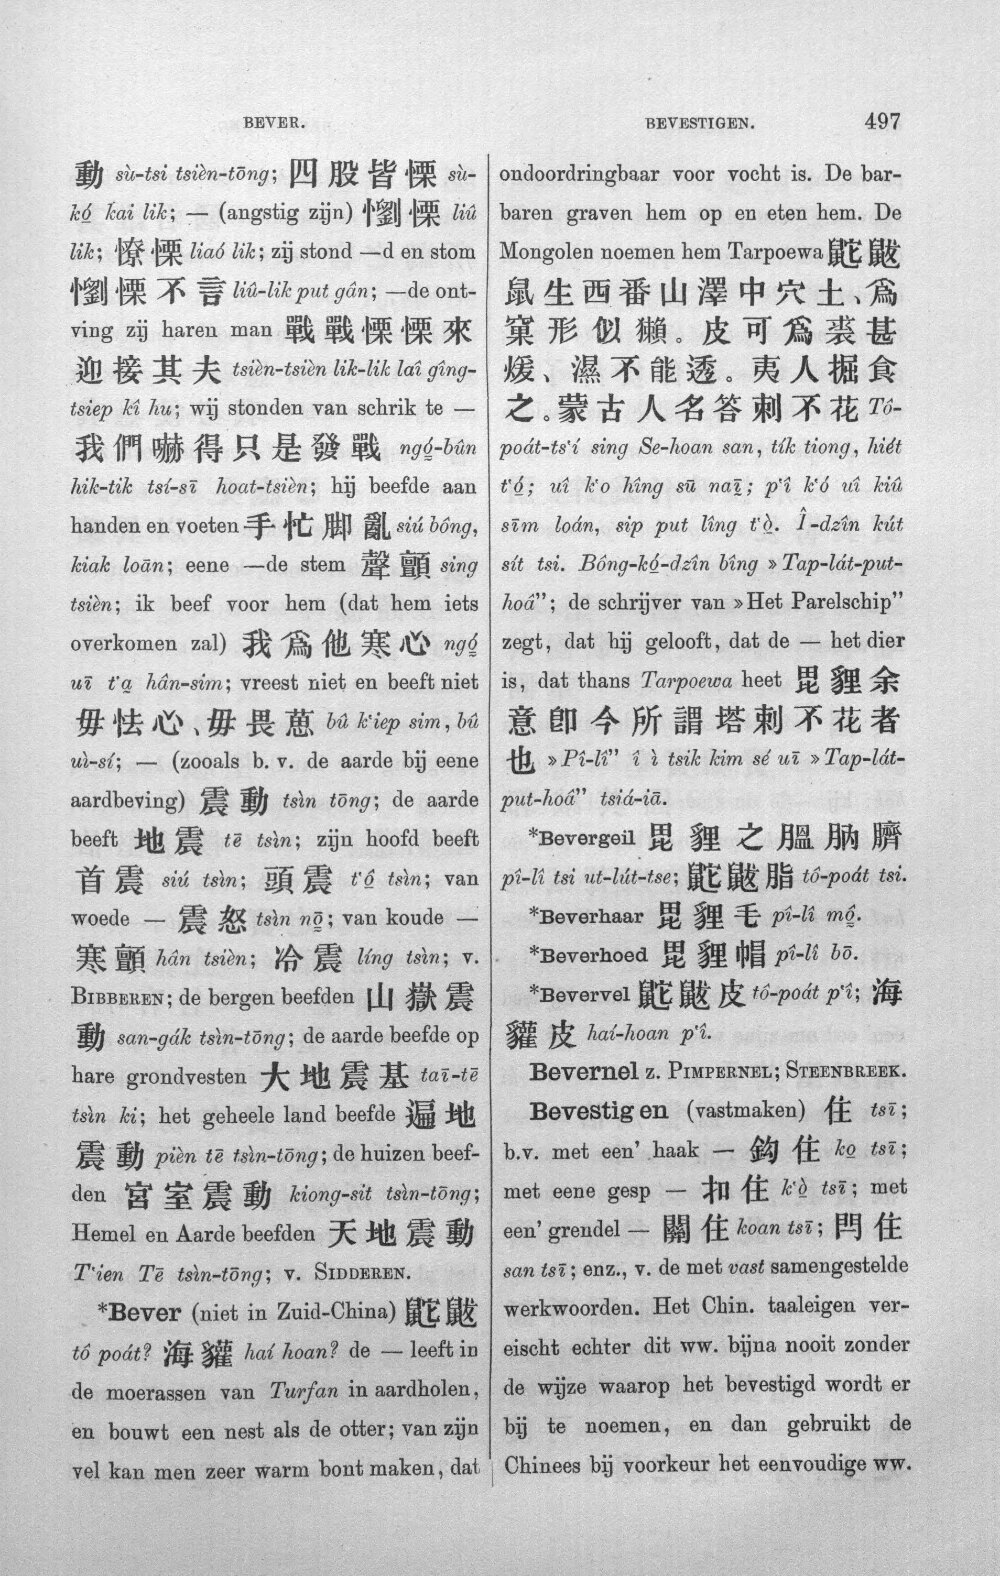 BEVER.
BEVESTIGEN. 497
動 sù-tsi tsièn-tōng; 四股皆慄 sù-
kó̤ kai lik; — (angstig zijn) 懰慄 liû
lik; 憭慄 liaó lik; zij stond —d en stom
懰慄不言 liû-lik put gân; —de ont-
ving zij haren man 戰戰慄慄來
迎接其夫 tsièn-tsièn lik-lik laî gîng-
tsiep kî hu; wij stonden van schrik te —
我們嚇得只是發戰 ngó̤-bûn
hik-tik tsí-sī hoat-tsièn; hij beefde aan
handen en voeten 手忙脚亂 siú bông,
kiak loān; eene —de stem 聲顫 sing
tsièn; ik beef voor hem (dat hem iets
overkomen zal) 我爲他寒心 ngó̤
uī t‘a̤ hân-sim; vreest niet en beeft niet
毋怯心、毋畏葸 bû k‘iep sim, bû
uì-sí; — (zooals b. v. de aarde bij eene
aardbeving) 震動 tsìn tōng; de aarde
beeft 地震 tē tsìn; zijn hoofd beeft
首震 siú tsìn; 頭震 t‘ô̤ tsìn; van
woede — 震怒 tsìn nō̤; van koude —
寒顫 hân tsièn; 冷震 líng tsìn; v.
BIBBEREN; de bergen beefden 山嶽震
動 san-gák tsìn-tōng; de aarde beefde op
hare grondvesten 大地震基 taī-tē
tsìn ki; het geheele land beefde 遍地
震動 pièn tē tsìn-tōng; de huizen beef-
den 宮室震動 kiong-sit tsìn-tōng;
Hemel en Aarde beefden 天地震動
T‘ien Tē tsìn-tōng; v. SIDDEREN.
*Bever (niet in Zuid-China) 鼧鼥
tô poát? 海貛 haí hoan? de — leeft in
de moerassen van Turfan in aardholen,
en bouwt een nest als de otter; van zijn
vel kan men zeer warm bont maken, dat
ondoordringbaar voor vocht is. De bar-
baren graven hem op en eten hem. De
Mongolen noemen hem Tarpoewa 鼧鼥
鼠生西番山澤中穴土、爲
窠形似獺。皮可爲裘甚
煖、濕不能透。夷人掘食
之。蒙古人名答剌不花 Tô-
poát-ts‘í sing Se-hoan san, tík tiong, hiét
t‘ó̤; uî k‘o hîng sū naī̤; p‘î k‘ó uî kiû
sīm loán, sip put lîng t‘ò̤. Î-dzîn kút
sít tsi. Bông-kó̤-dzîn bîng »Tap-lát-put-
hoâ"; de schrijver van »Het Parelschip"
zegt, dat hij gelooft, dat de — het dier
is, dat thans Tarpoewa heet 毘貍余
意卽今所謂塔剌不花者
也 »Pî-lî" î ì tsik kim sé uī »Tap-lát-
put-hoâ" tsiá-iā.
*Bevergeil 毘貍之膃肭臍
pî-lî tsi ut-lút-tse; 鼧鼥脂 tô-poát tsi.
*Beverhaar 毘貍毛 pî-lî mô̤.
*Beverhoed 毘貍帽 pî-lî bō.
*Bevervel 鼧鼥皮 tô-poát p‘î; 海
貛皮 haí-hoan p‘î.
Bevernel z. PIMPERNEL; STEENBREEK.
Bevestigen (vastmaken) 住 tsī;
b.v. met een' haak — 鈎住 ko̤ tsī;
met eene gesp — 扣住 k‘ò̤ tsī; met
een' grendel — 關住 koan tsī; 閂住
san tsī; enz., v. de met vast samengestelde
werkwoorden. Het Chin. taaleigen ver-
eischt echter dit ww. bijna nooit zonder
de wijze waarop het bevestigd wordt er
bij te noemen, en dan gebruikt de
Chinees bij voorkeur het eenvoudige ww.